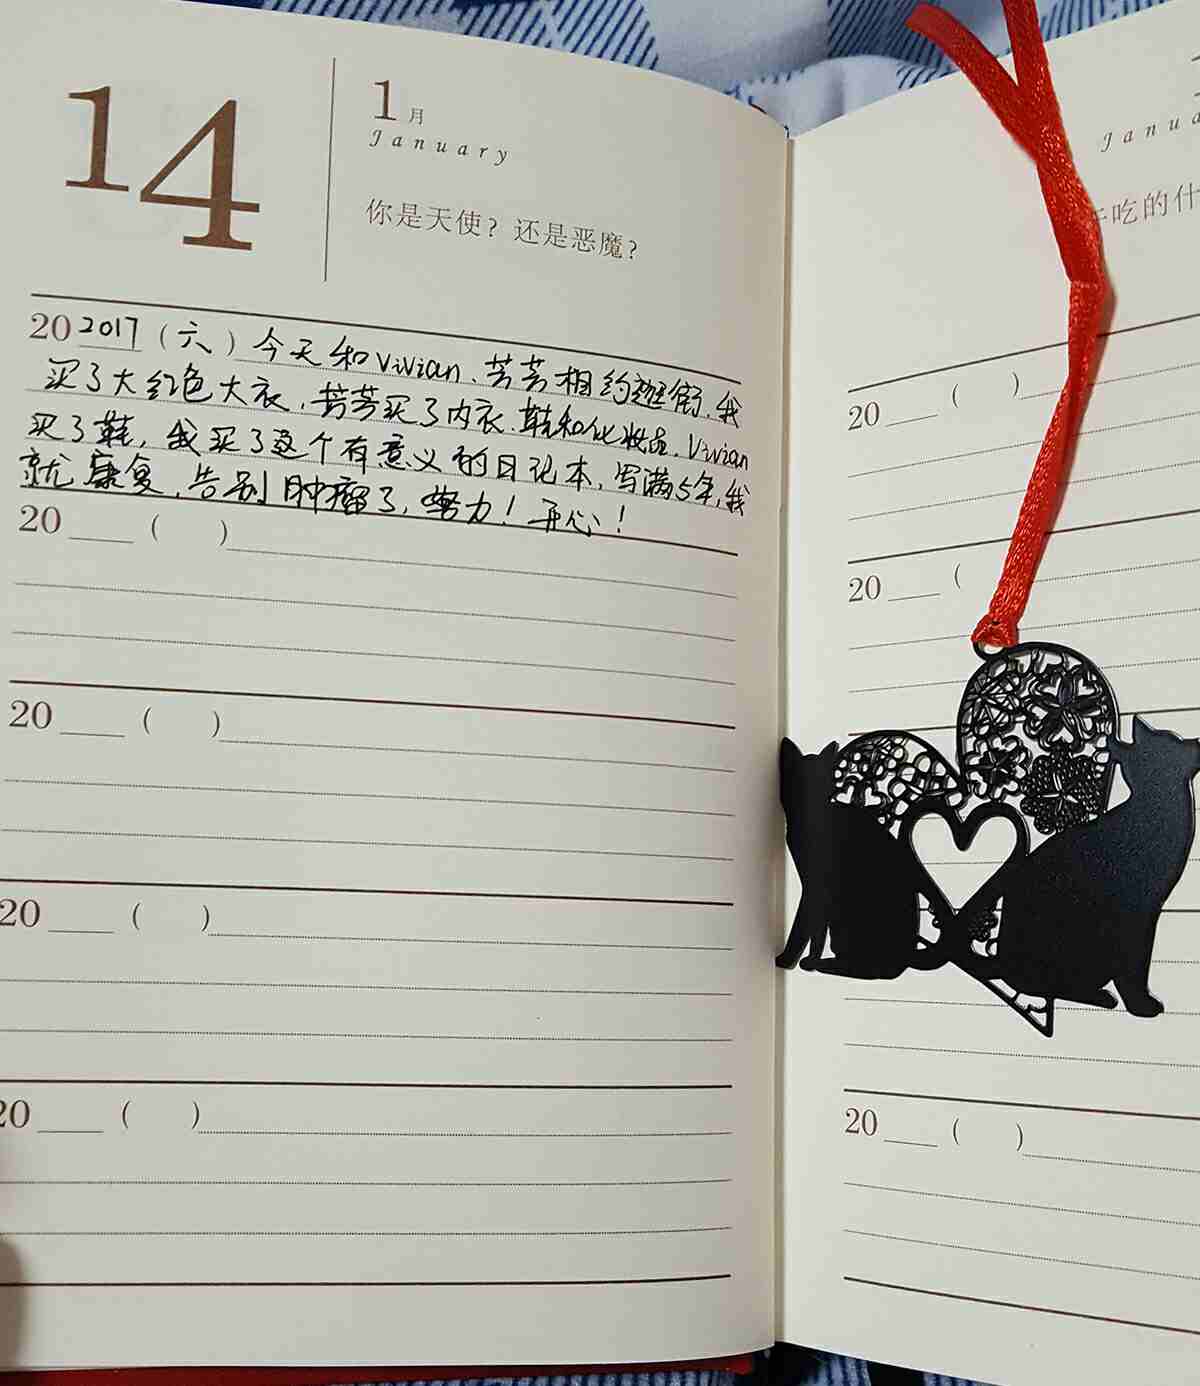 14
1月
January
你是天使？还是恶魔？
20 2017（六）今天和Vivian、芳芳相约逛街，我
买了大红色大衣，芳芳买了内衣、鞋和化妆品，Vivian
买了鞋，我买了这个有意义的日记本，写满5年，我
就康复，告别肿瘤了，努力！开心！
20 ( )
20 ( )
20 ( )
20 ( )
吃的什
20 ( )
20 (
20 ( )